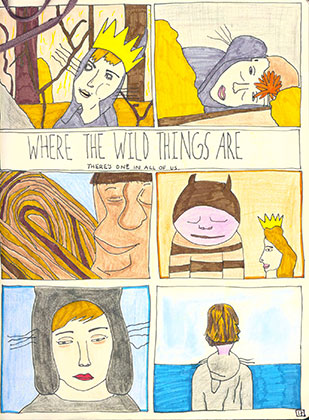 WHERE THE WILD THINGS ARE
THERE'S ONE IN ALL OF US.